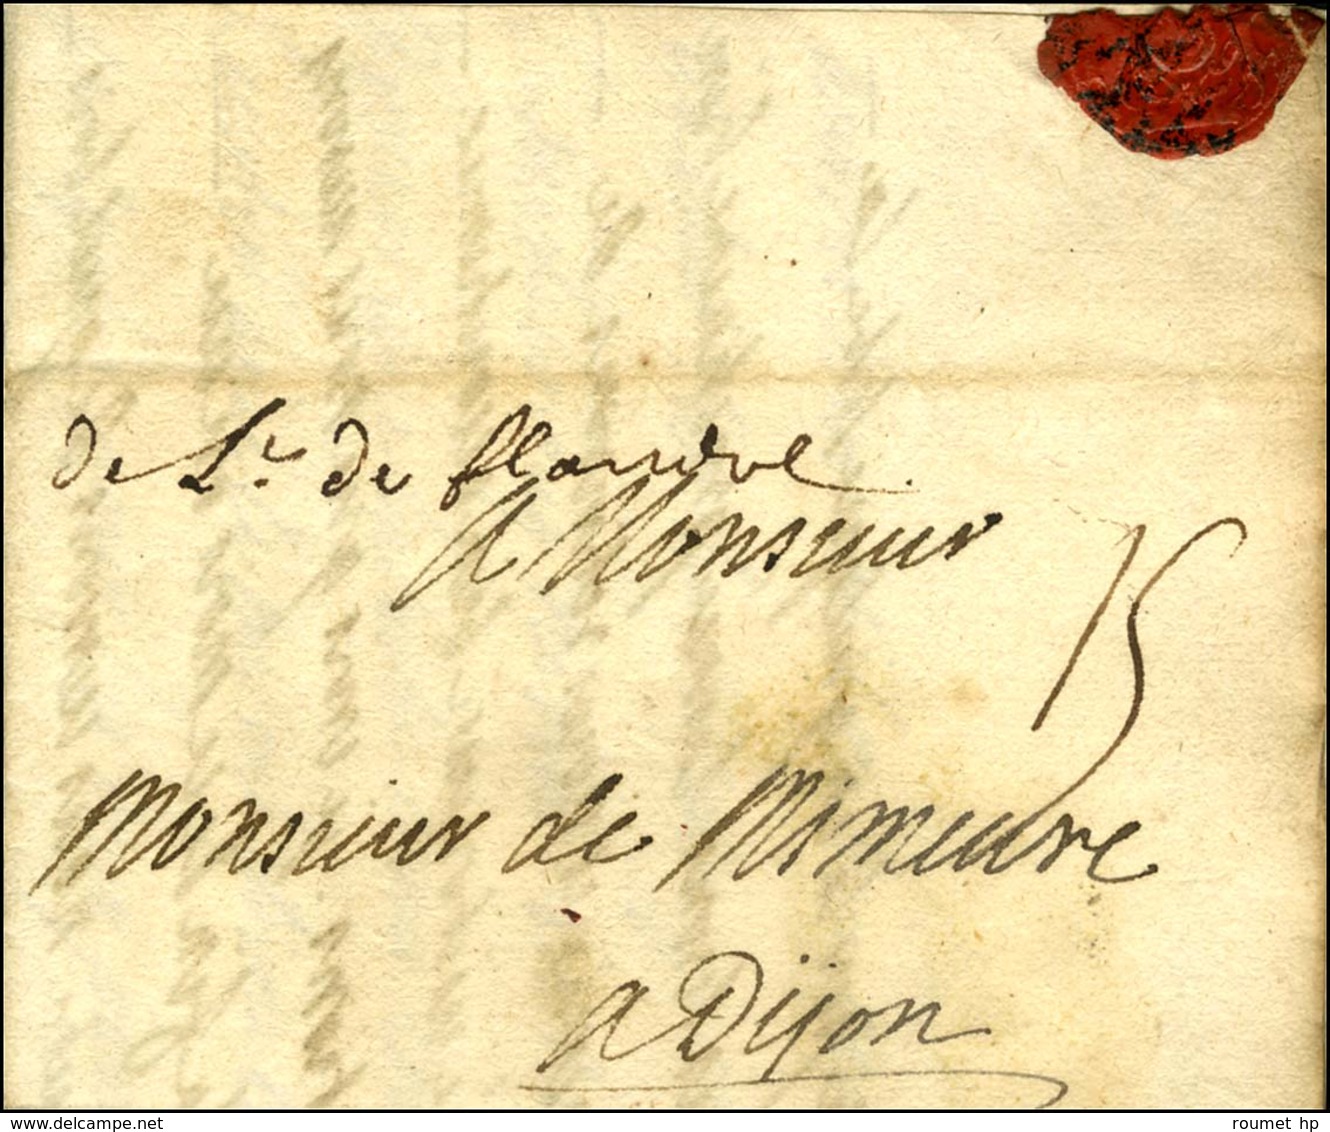 de L.r de flandre
A Monsieur
15
Monsieur de Mimeure
a Dijon
delcampe.net
roumet hp